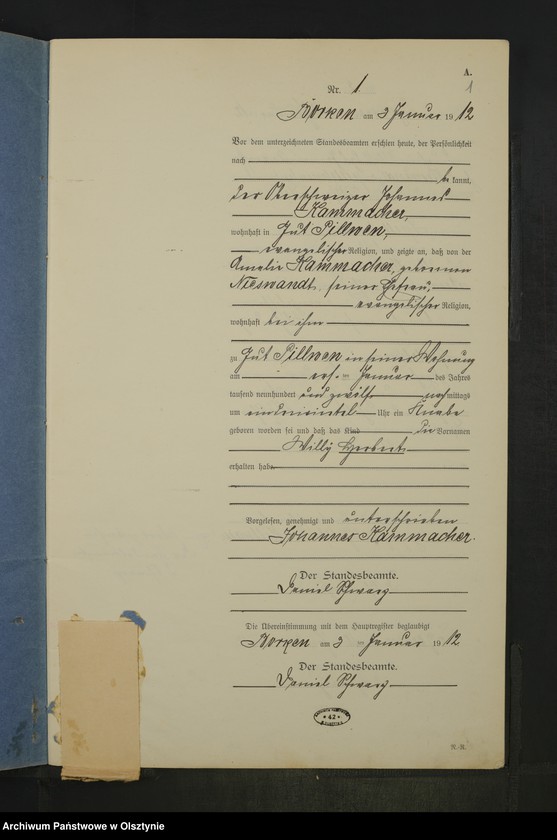 A.
1
Nr. 1
Borken am 3 Januar 1912
Vor dem unterzeichneten Standesbeamten erschien heute, der Persönlichkeit
nach
be kannt,
der Oberschweizer Johannes
Kammacher,
wohnhaft in Gut Pillwen,
evangelischer Religion, und zeigte an, daß von der
Amalie Kammacher, geborenen
Nieswandt, seiner Ehefrau,
evangelischer Religion,
wohnhaft bei ihm
zu Gut Pillwen in seiner Wohnung
am Januar des Jahres
tausend neunhundert und zwölf nachmittags
um Uhr ein Knabe
geboren worden sei und daß das Kind die Vornamen
Willy Herbert
erhalten habe
Vorgelesen, genehmigt und unterschrieben
Johannes Kammacher.
Der Standesbeamte.
Daniel Schwarz
Die Übereinstimmung mit dem Hauptregister beglaubigt
Borken am 3 Januar 1912
Der Standesbeamte.
Daniel Schwarz
* 42 *
Archiwum Państwowe w Olsztynie